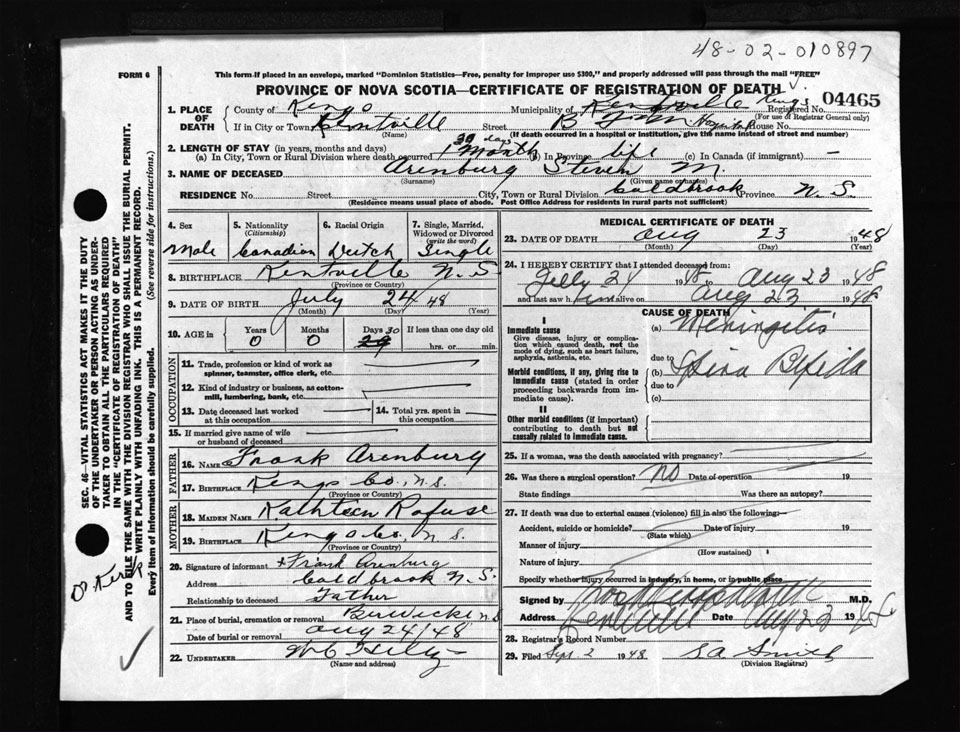 48-02-010897
FORM 6
This form if placed in an envelope, marked "Dominion Statistics—Free, penalty for improper use $300," and properly addressed will pass through the mail "FREE"
PROVINCE OF NOVA SCOTIA—CERTIFICATE OF REGISTRATION OF DEATH
1. PLACE OF DEATH
County of Kings Municipality of Kentville Kings Registered No. 04465
(For use of Registrar General only)
If in City or Town Kentville Street B F M Hospital House No.
(Name) (If death occurred in a hospital or institution, give the name instead of street and number)
2. LENGTH OF STAY (in years, months and days) 30 days
(a) In City, Town or Rural Division where death occurred 1 Month (b) In Province life (c) In Canada (if immigrant) —
3. NAME OF DECEASED Arenburg Steven M.
(Surname) (Given name or names)
RESIDENCE No. Street City, Town or Rural Division Coldbrook Province N. S.
(Residence means usual place of abode. Post Office Address for residents in rural parts not sufficient)
4. Sex
Male
5. Nationality (Citizenship)
Canadian
6. Racial Origin
Dutch
7. Single, Married, Widowed or Divorced (write the word)
Single
8. BIRTHPLACE Kentville N. S
(Province or Country)
9. DATE OF BIRTH July 24 48
(Month) (Day) (Year)
10. AGE in Years Months Days 30 If less than one day old
0 0 29 hrs. or min.
OCCUPATION
11. Trade, profession or kind of work as spinner, teamster, office clerk, etc.
12. Kind of industry or business, as cotton-mill, lumbering, bank, etc.
13. Date deceased last worked at this occupation
14. Total yrs. spent in this occupation
15. If married give name of wife or husband of deceased
FATHER
16. NAME Frank Arenburg
17. BIRTHPLACE Kings Co., N.S.
(Province or Country)
MOTHER
18. MAIDEN NAME Kathleen Rafuse
19. BIRTHPLACE Kings Co. N. S.
(Province or Country)
20. Signature of informant + Frank Arenburg
Address Coldbrook N. S.
Relationship to deceased Father
21. Place of burial, cremation or removal Berwick N.S
Date of burial or removal Aug 24/48
22. UNDERTAKER
(Name and address)
MEDICAL CERTIFICATE OF DEATH
23. DATE OF DEATH Aug 23 1948
(Month) (Day) (Year)
24. I HEREBY CERTIFY that I attended deceased from:
July 24 1948 to Aug 23 1948
and last saw him alive on Aug 23 1948
I
Immediate cause
Give disease, injury or complication which caused death, not the mode of dying, such as heart failure, asphyxia, asthenia, etc.
Morbid conditions, if any, giving rise to immediate cause (stated in order proceeding backwards from immediate cause).
II
Other morbid conditions (if important) contributing to death but not causally related to immediate cause.
CAUSE OF DEATH
(a) Meningitis
due to
(b) Spina Bifida
due to
(c)
25. If a woman, was the death associated with pregnancy?
26. Was there a surgical operation? NO Date of operation 19
State findings Was there an autopsy?
27. If death was due to external causes (violence) fill in also the following:
Accident, suicide or homicide? Date of injury 19
(State which)
Manner of injury
(How sustained)
Nature of injury
Specify whether injury occurred in industry, in home, or in public place
Signed by M.D.
Address Kentville Date Aug 23 1948
28. Registrar's Record Number
29. Filed Sept. 2 1948 S A Smith
(Division Registrar)
SEC. 46—VITAL STATISTICS ACT MAKES IT THE DUTY OF THE UNDERTAKER OR PERSON ACTING AS UNDERTAKER TO OBTAIN ALL THE PARTICULARS REQUIRED IN THE "CERTIFICATE OF REGISTRATION OF DEATH" AND TO FILE THE SAME WITH THE DIVISION REGISTRAR WHO SHALL ISSUE THE BURIAL PERMIT.
WRITE PLAINLY WITH UNFADING INK. THIS IS A PERMANENT RECORD.
Every item of information should be carefully supplied. (See reverse side for instructions.)